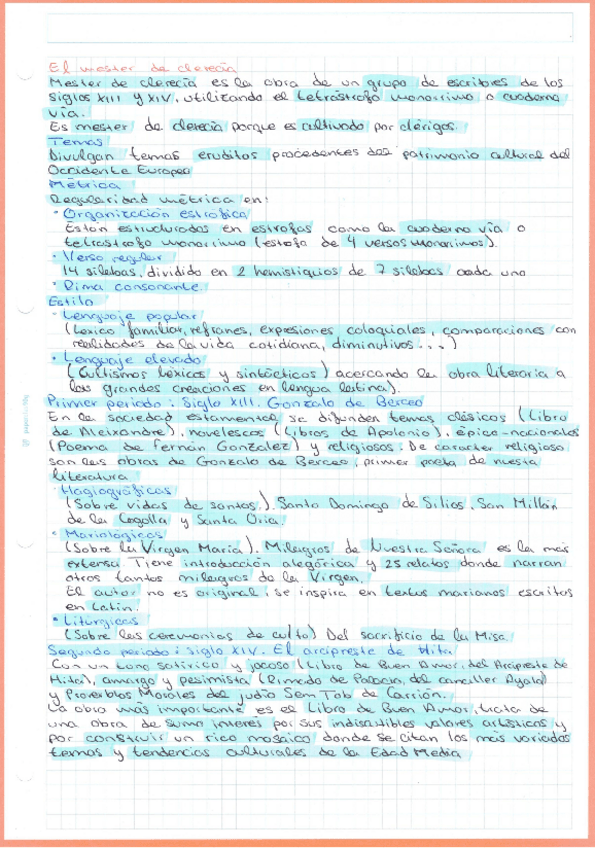 El mester de clerecía
Mester de clerecía es la obra de un grupo de escritores de los
siglos XIII y XIV, utilizando el tetrástrofo monorrimo o cuaderna
vía.
Es mester de clerecía porque es cultivado por clérigos.
Temas
Divulgan temas eruditos procedentes del patrimonio cultural del
Occidente Europeo
Métrica
Regularidad métrica en:
· Organización estrófica
Están estructuradas en estrofas como la cuaderna vía o
tetrastrofo monorrimo (estrofa de 4 versos monorrimos).
· Verso regular
14 sílabas, dividido en 2 hemistiquios de 7 sílabas cada uno
· Rima consonante.
Estilo
· Lenguaje popular
(Léxico familiar, refranes, expresiones coloquiales, comparaciones con
realidades de la vida cotidiana, diminutivos...)
· Lenguaje elevado
(Cultismos léxicos y sintácticos) acercando la obra literaria a
las grandes creaciones en lengua latina).
Primer periodo: Siglo XIII. Gonzalo de Berceo
En la sociedad estamental se difunden temas clásicos (Libro
de Aleixandre), novelescos (Libros de Apolonio), épico-nacionales
(Poema de Fernán González) y religiosos. De caracter religioso
son las obras de Gonzalo de Berceo, primer poeta de nuesta
literatura
· Hagiográficas
(Sobre vidas de santos). Santo Domingo de Silios, San Millán
de la Cogolla y Santa Oria.
· Mariológicas
(Sobre la Virgen María). Milagros de Nuestra Señora es la más
extensa. Tiene introducción alegórica y 25 relatos donde narran
otros tantos milagros de la Virgen.
El autor no es original, se inspira en textos marianos escritos
en Latin.
· Litúrgicas
(Sobre las ceremonias de culto) Del sacrificio de la Misa
Segundo periodo: siglo XIV. El arcipreste de hita
Con un tono satírico y jocoso (Libro de Buen Amor, del Arcipreste de
Hita), amargo y pesimista (Rimado de Palacio, del canciller Ayala)
y Proverbios Morales del judío Sem Tob de Carrión.
La obra más importante es el Libro de Buen Amor, trata de
una obra de sumo interés por sus indiscutibles valores artísticos y
por construir un rico mosaico donde se citan los más variados
temas y tendencias culturales de la Edad Media